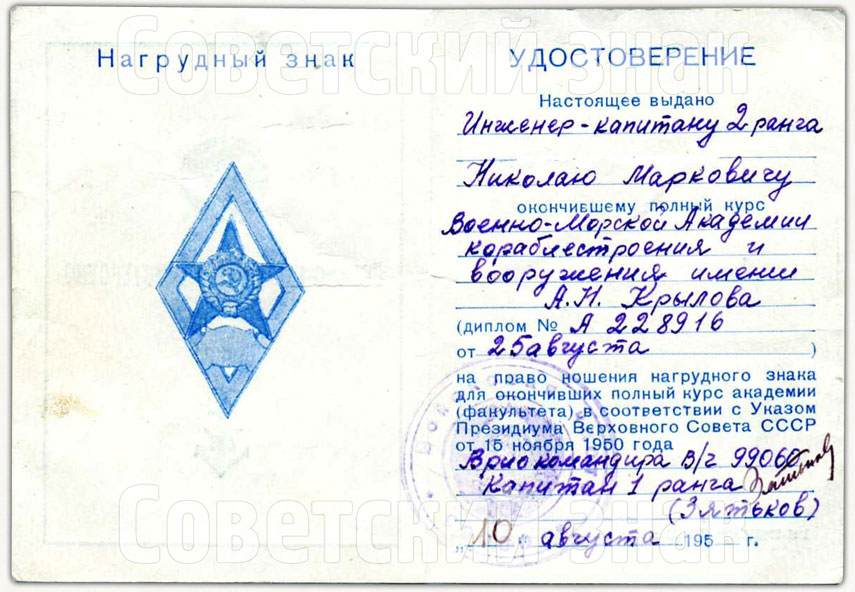 Советский знак
Нагрудный знак
УДОСТОВЕРЕНИЕ
Настоящее выдано
Инженер-капитану 2 ранга
Николаю Марковичу
окончившему полный курс
Военно-Морской Академии
кораблестроения и
вооружения имени
А.Н. Крылова
(диплом № А 228916
от 25 августа )
на право ношения нагрудного знака
для окончивших полный курс академии
(факультета) в соответствии с Указом
Президиума Верховного Совета СССР
от 15 ноября 1950 года
Врио командира В/ч 99060
Капитан 1 ранга
(Зятьков)
„10" августа 195 г.
Советский знак